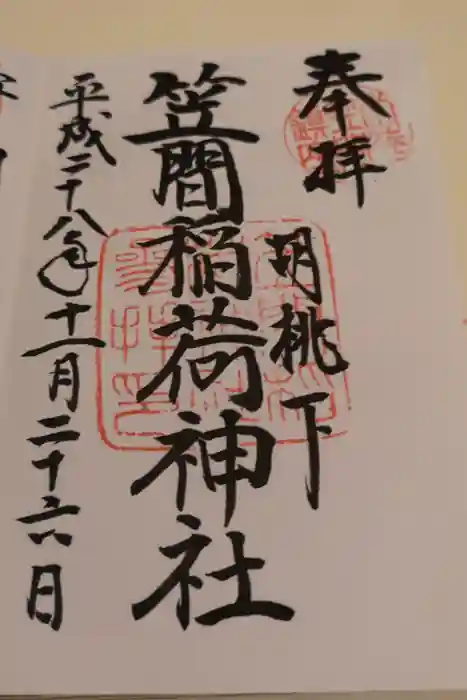 奉拝
胡桃下
笠間稲荷神社
平成二十八年十一月二十六日